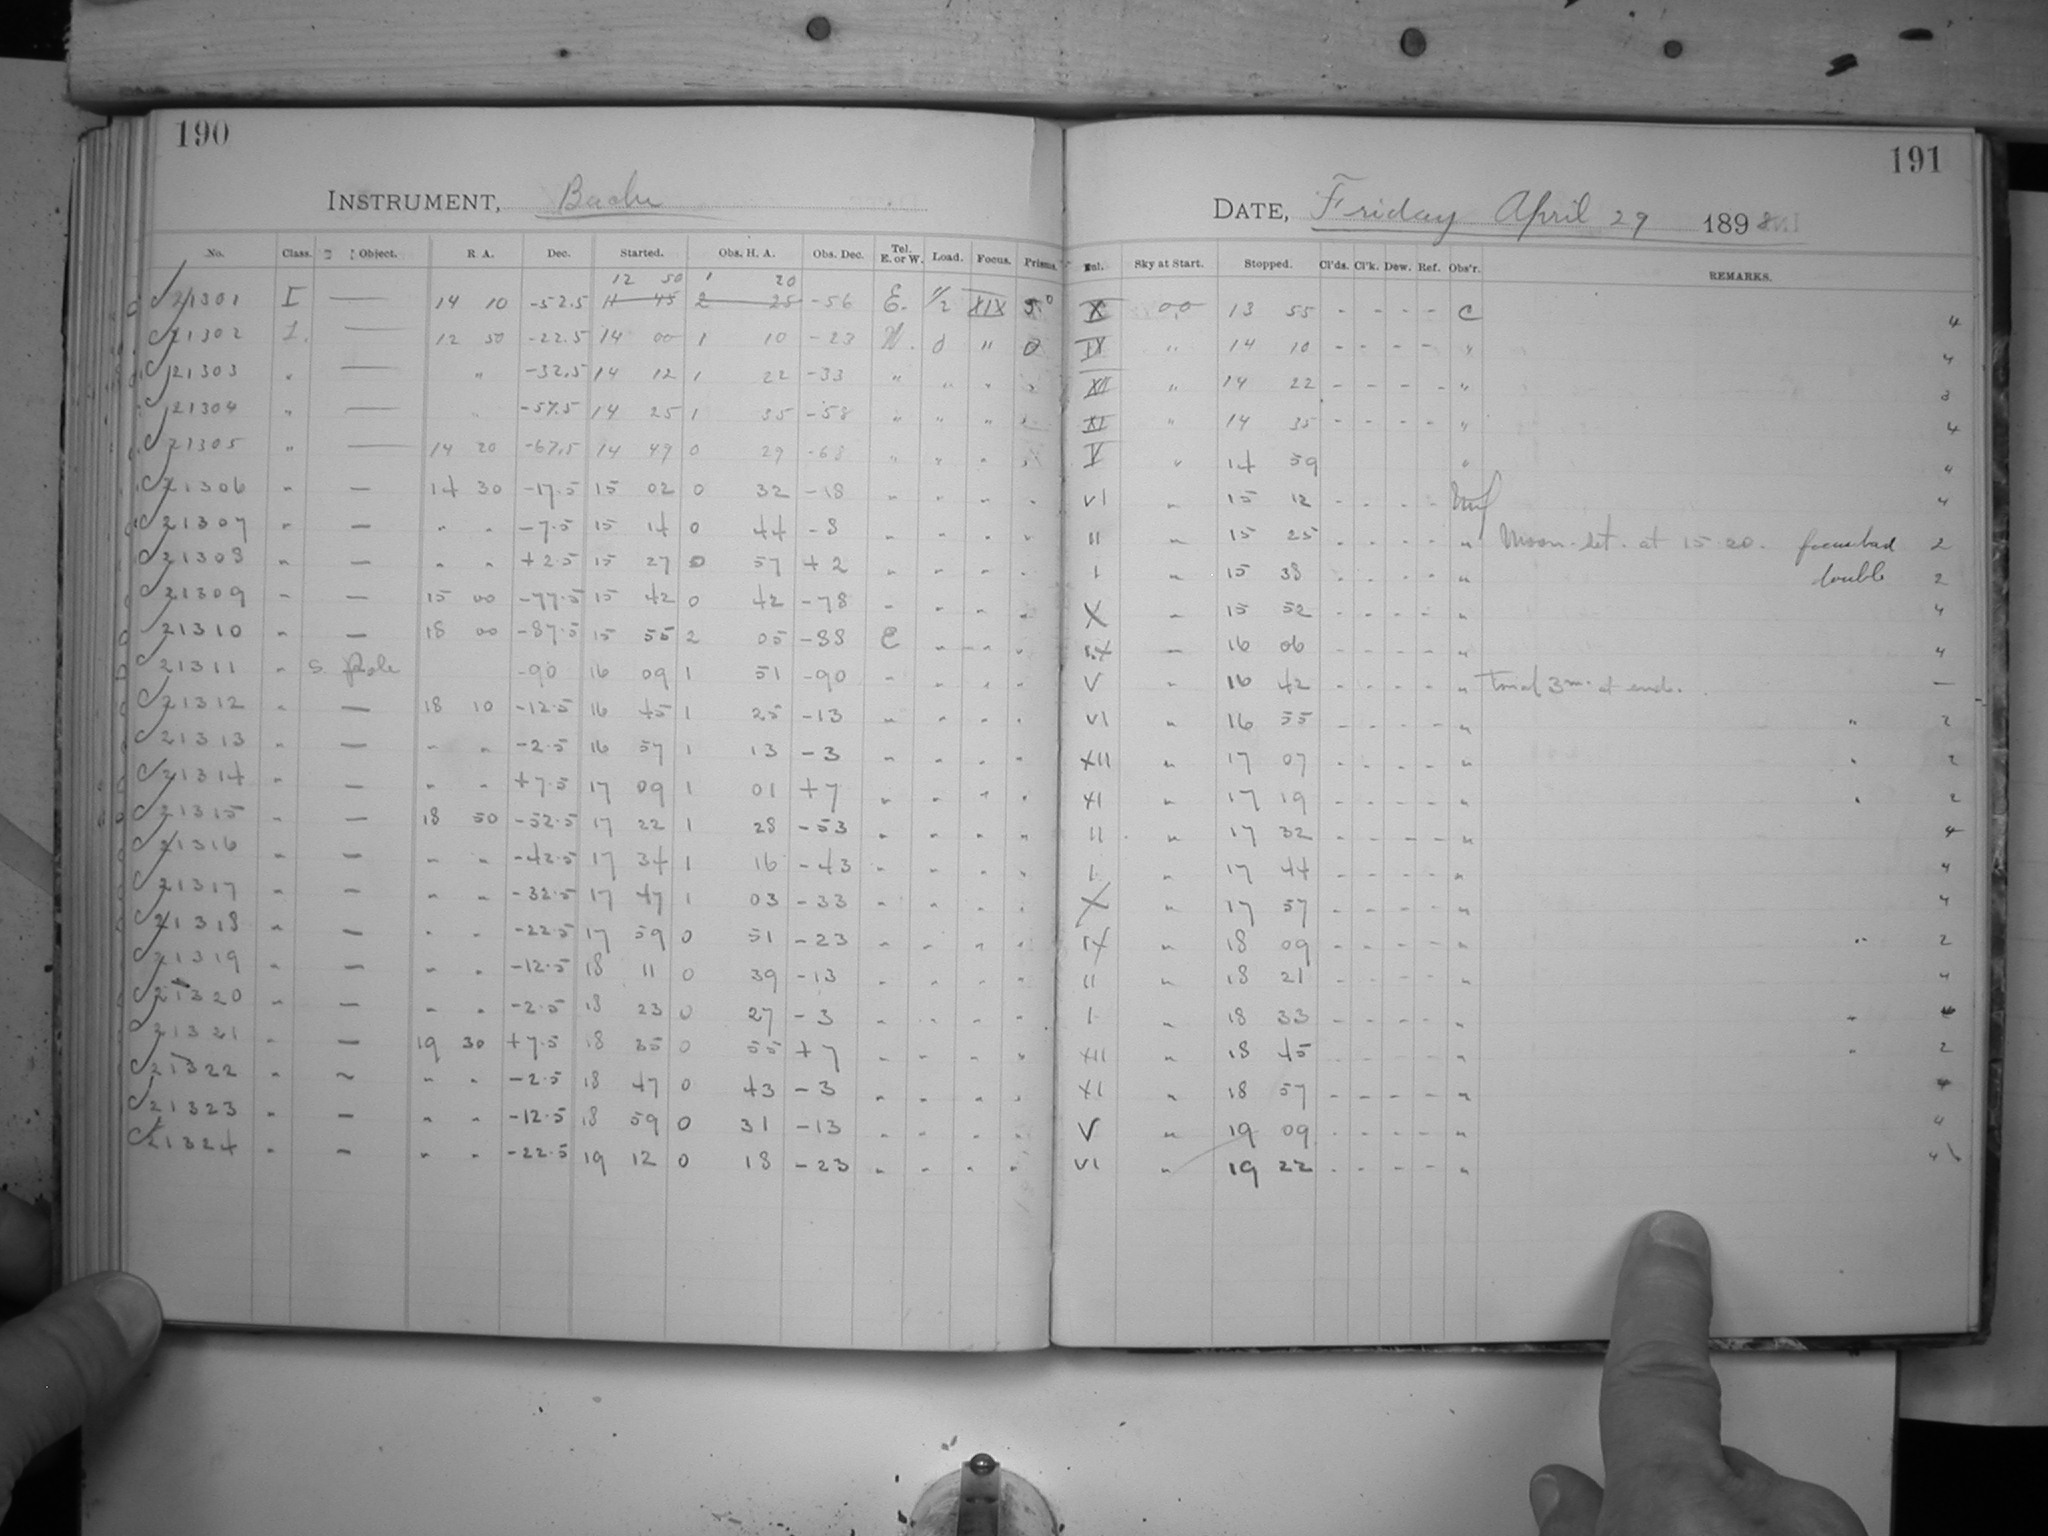 190
INSTRUMENT, Bache
No. Class. Object. R. A. Dec. Started. Obs. H. A. Obs. Dec. Tel. E. or W. Load. Focus. Prisms.
12 50 1 20
C 21301 I — 14 10 -52.5 11 45 2 25 -56 E. 1/2 XIX 5°
C 21302 I. — 12 50 -22.5 14 00 1 10 -23 W. 0 " 0
C 21303 " — " -32.5 14 12 1 22 -33 " " " "
C 21304 " — " -57.5 14 25 1 35 -58 " " " "
C 21305 " — 14 20 -67.5 14 49 0 29 -68 " " " "
C 21306 " — 14 30 -17.5 15 02 0 32 -18 " " " "
C 21307 " — " " -7.5 15 14 0 44 -8 " " " "
C 21308 " — " " +2.5 15 27 0 57 +2 " " " "
C 21309 " — 15 00 -77.5 15 42 0 42 -78 " " " "
21310 " — 18 00 -87.5 15 55 2 05 -88 E " " "
C 21311 " S. Pole -90 16 09 1 51 -90 " " " "
C 21312 " — 18 10 -12.5 16 45 1 25 -13 " " " "
C 21313 " — " " -2.5 16 57 1 13 -3 " " " "
C 21314 " — " " +7.5 17 09 1 01 +7 " " " "
C 21315 " — 18 50 -52.5 17 22 1 28 -53 " " " "
C 21316 " — " " -42.5 17 34 1 16 -43 " " " "
C 21317 " — " " -32.5 17 47 1 03 -33 " " " "
C 21318 " — " " -22.5 17 59 0 51 -23 " " " "
C 21319 " — " " -12.5 18 11 0 39 -13 " " " "
C 21320 " — " " -2.5 18 23 0 27 -3 " " " "
C 21321 " — 19 30 +7.5 18 35 0 55 +7 " " " "
C 21322 " — " " -2.5 18 47 0 43 -3 " " " "
C 21323 " — " " -12.5 18 59 0 31 -13 " " " "
C 21324 " — " " -22.5 19 12 0 18 -23 " " " "
191
DATE, Friday April 29 1898
Sky at Start. Stopped. Cl'ds. Cl'k. Dew. Ref. Obs'r. REMARKS.
X 00 13 55 - - - - C 4
IX " 14 10 - - - - " 4
XII " 14 22 - - - - " 3
XI " 14 35 - - - - " 4
V " 14 59 " 4
VI " 15 12 - - - - 4
II " 15 25 - - - - " Moon set at 15 20. focus bad 2
I " 15 38 - - - - " double 2
X " 15 52 - - - - " 4
IX " 16 06 - - - - " 4
V " 16 42 - - - - " Trial 3m. at end. —
VI " 16 55 - - - - " " 2
XII " 17 07 - - - - " " 2
XI " 17 19 - - - - " " 2
II " 17 32 - - - - " 4
I " 17 44 - - - - " 4
X " 17 57 - - - - " 4
IX " 18 09 - - - - " " 2
II " 18 21 - - - - " 4
I " 18 33 - - - - " "
XII " 18 45 - - - - " " 2
XI " 18 57 - - - - " 4
V " 19 09 - - - - " 4
VI " 19 22 - - - - " 4